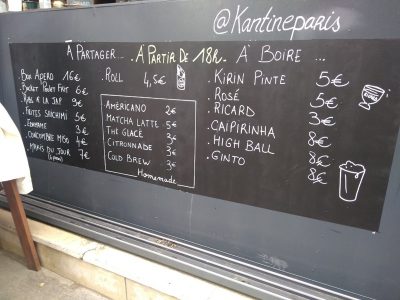 @Kantineparis
À PARTAGER... À PARTIR DE 18h. À BOIRE ...
. BOX APERO 16€
. BUCKET POULET FRIT 6€
À LA JAP 9€
. FRITES SHICHIMI 5€
. EDAMAME 3€
. CONCOMBRE MISO 4€
. MAKIS DU JOUR 7€
. ROLL 4,5€
AMÉRICANO 2€
MATCHA LATTE 5€
THE GLACÉ 3€
CITRONNADE 3€
COLD BREW 3€
Homemade
. KIRIN PINTE 5€
. ROSÉ 5€
. RICARD 3€
. CAIPIRINHA 8€
. HIGH BALL 8€
. GINTO 8€